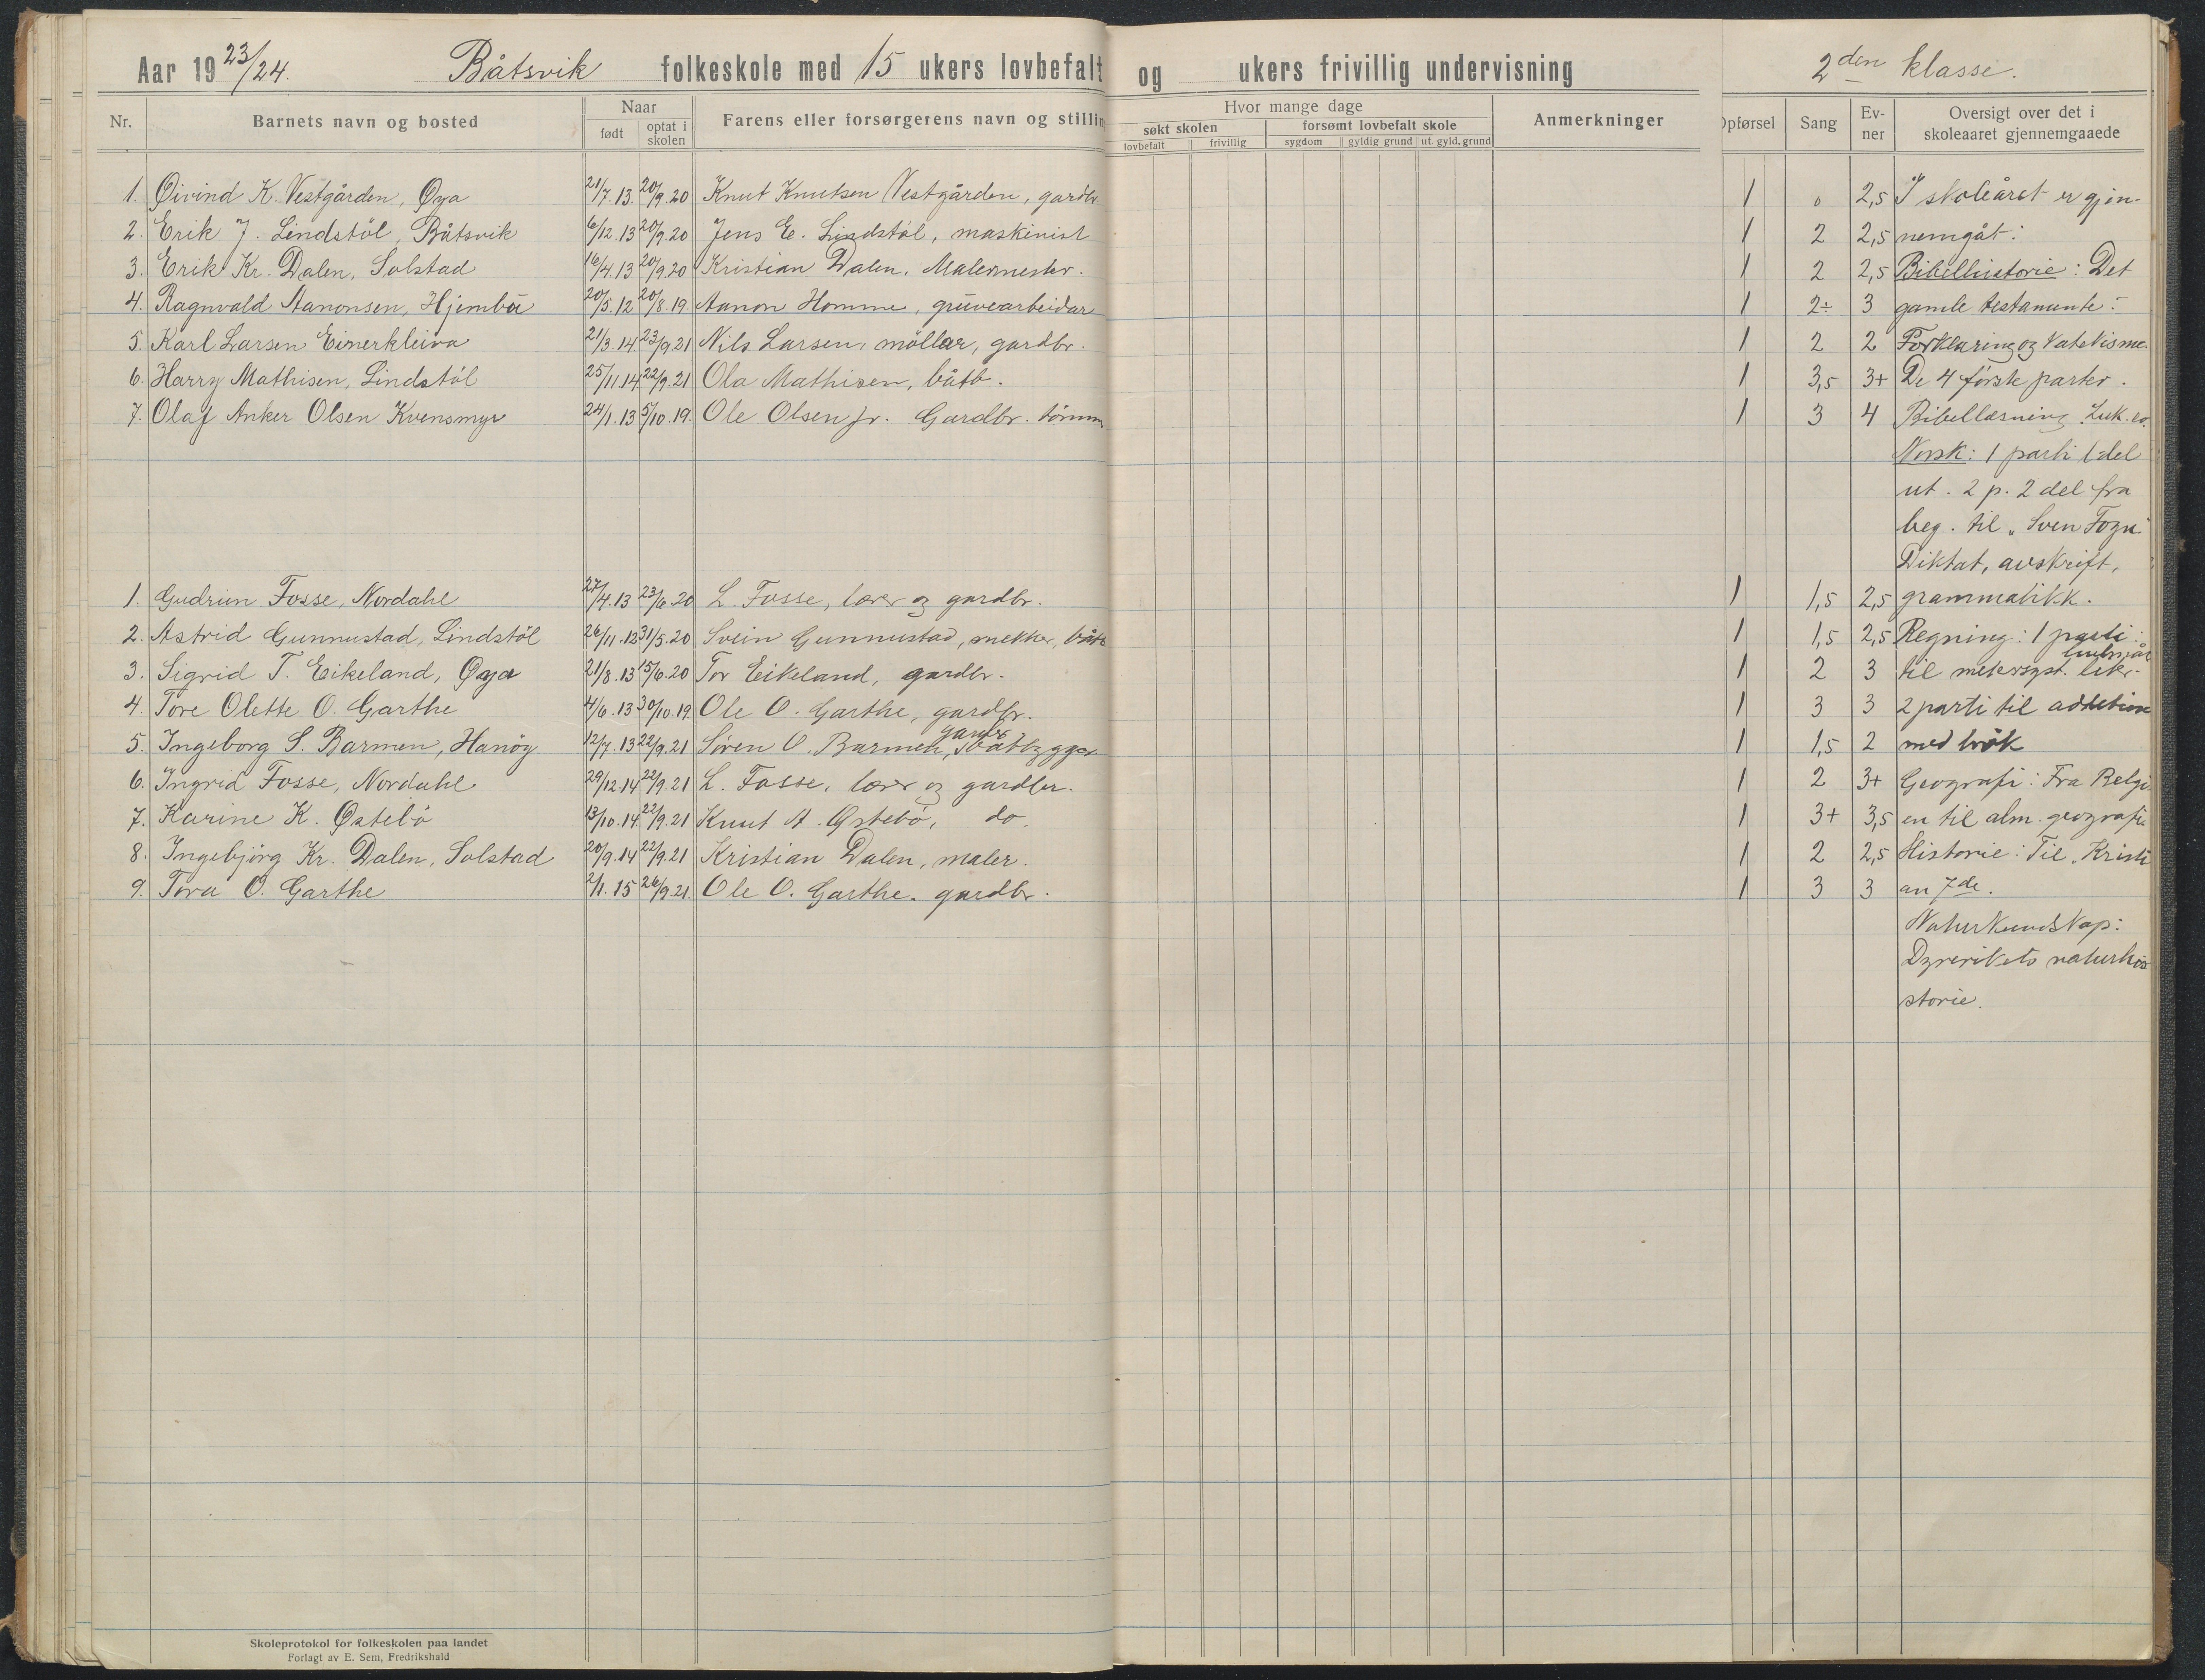 Aar 1923/24. Båtsvik folkeskole med 15 ukers lovbefalt og ukers frivillig undervisning 2den klasse.
Nr. Barnets navn og bosted Naar født optat i skolen Farens eller forsørgerens navn og stillin Hvor mange dage søkt skolen lovbefalt frivillig forsømt lovbefalt skole sygdom gyldig grund ut. gyld. grund Anmerkninger Opførsel Sang Ev-ner Oversigt over det i skoleaaret gjennemgaaede
1. Øivind K. Vestgården, Øya 21/7.13. 20/9.20 Knut Knutsen Vestgården, gardbr. 1 0 2,5 I skoleåret er gjen-
2. Erik J. Lindstöl, Båtsvik 6/12.13 20/9.20 Jens E. Lindstöl, maskinist 1 2 2,5 nemgåt:
3. Erik Kr. Dalen, Solstad 16/4.13 20/9.20 Kristian Dalen, Malermester. 1 2 2,5 Bibelhistorie: Det
4. Ragnvald Aanonsen, Hjembu 20/5.12 20/8.19. Aanon Homme, gruvearbeidar 1 2÷ 3 gamle testamente:
5. Karl Larsen Eimerkleiva 21/3.14 23/9.21 Nils Larsen, möllar, gardbr. 1 2 2 Forklaring og katekisme.
6. Harry Mathisen, Lindstöl 25/11.14 22/9.21 Ola Mathisen, båtb. 1 3,5 3+ De 4 förste parter.
7. Olaf Anker Olsen Kvensmyr 24/1.13 5/10.19. Ole Olsen jr. Gardbr. tömm 1 3 4 Bibellæsning Luk. ev.
Norsk: 1 parti 1 del
ut. 2 p. 2 del fra
beg. til „Sven Fozn"
Diktat, avskrift,
1. Gudrun Fosse, Nordahl 27/4.13 23/6.20 L. Fosse, lærer og gardbr. 1 1,5 2,5 grammatikk.
2. Astrid Gunnustad, Lindstöl 26/11.12 31/5.20 Svein Gunnustad, snekker, båtb 1 1,5 2,5 Regning: 1 parti:
3. Sigrid T. Eikeland, Øya 21/8.13 15/6.20 Tor Eikeland, gardbr. 1 2 3 til metersyst.
4. Tore Olette O. Garthe 4/6.13 30/10.19. Ole O. Garthe, gardbr. 1 3 3 2 parti til addition
5. Ingeborg S. Barmen, Hanöy 12/7.13 22/9.21 Sören O. Barmen, gardb båtbygger 1 1,5 2 med brök
6. Ingrid Fosse, Nordahl 29/12.14 22/9.21 L. Fosse, lærer og gardbr. 1 2 3+ Geografi: Fra Belgi
7. Karine K. Østebö 13/10.14 22/9.21 Knut A. Østebö, do. 1 3+ 3,5 en til alm. geografi
8. Ingebjörg Kr. Dalen, Solstad 20/9.14 22/9.21 Kristian Dalen, maler. 1 2 2,5 Historie: Til „Kristi
9. Tora O. Garthe 2/1.15 26/9.21. Ole O. Garthe. gardbr. 1 3 3 an 7de.
Naturkundskap:
Dyrerikets naturhi
storie.
Skoleprotokol for folkeskolen paa landet
Forlagt av E. Sem, Fredrikshald